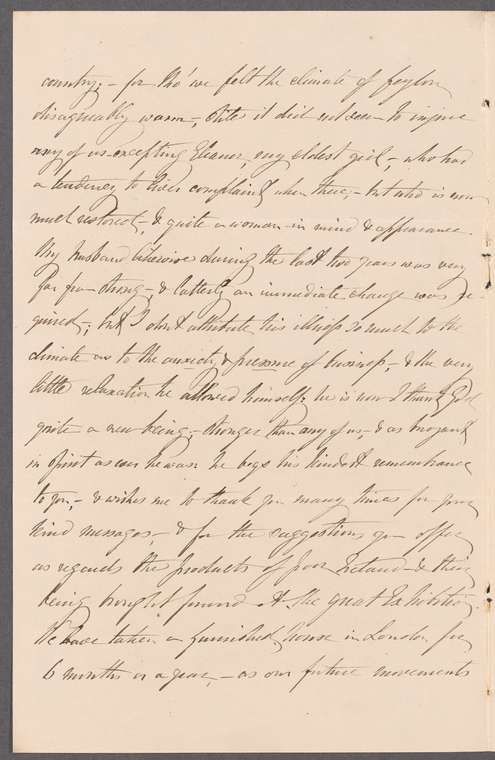 country; – for tho' we felt the climate of Ceylon
disagreeably warm –, still it did not seem to injure
any of us excepting Eleanor, my eldest girl, – who had
a tendency to liver complaint when there, – but who is now
much restored –, & quite a woman in mind & appearance.
My husband likewise during the last two years was very
far from strong, – & latterly an immediate change was re
quired; but I don't attribute his illness so much to the
climate as to the anxiety & pressure of business, – & the very
little relaxation he allowed himself; he is now I thank God
quite a new being, – stronger than any of us, – & as buoyant
in spirit as ever he was. he begs his kindest remembrance
to you, – & wishes me to thank you many times for your
kind messages – & for the suggestions you offer
as regards the products of poor Ireland & their
being brought forward at the great Exhibition.
We have taken a furnished house in London for
6 months or a year, – as our future movements